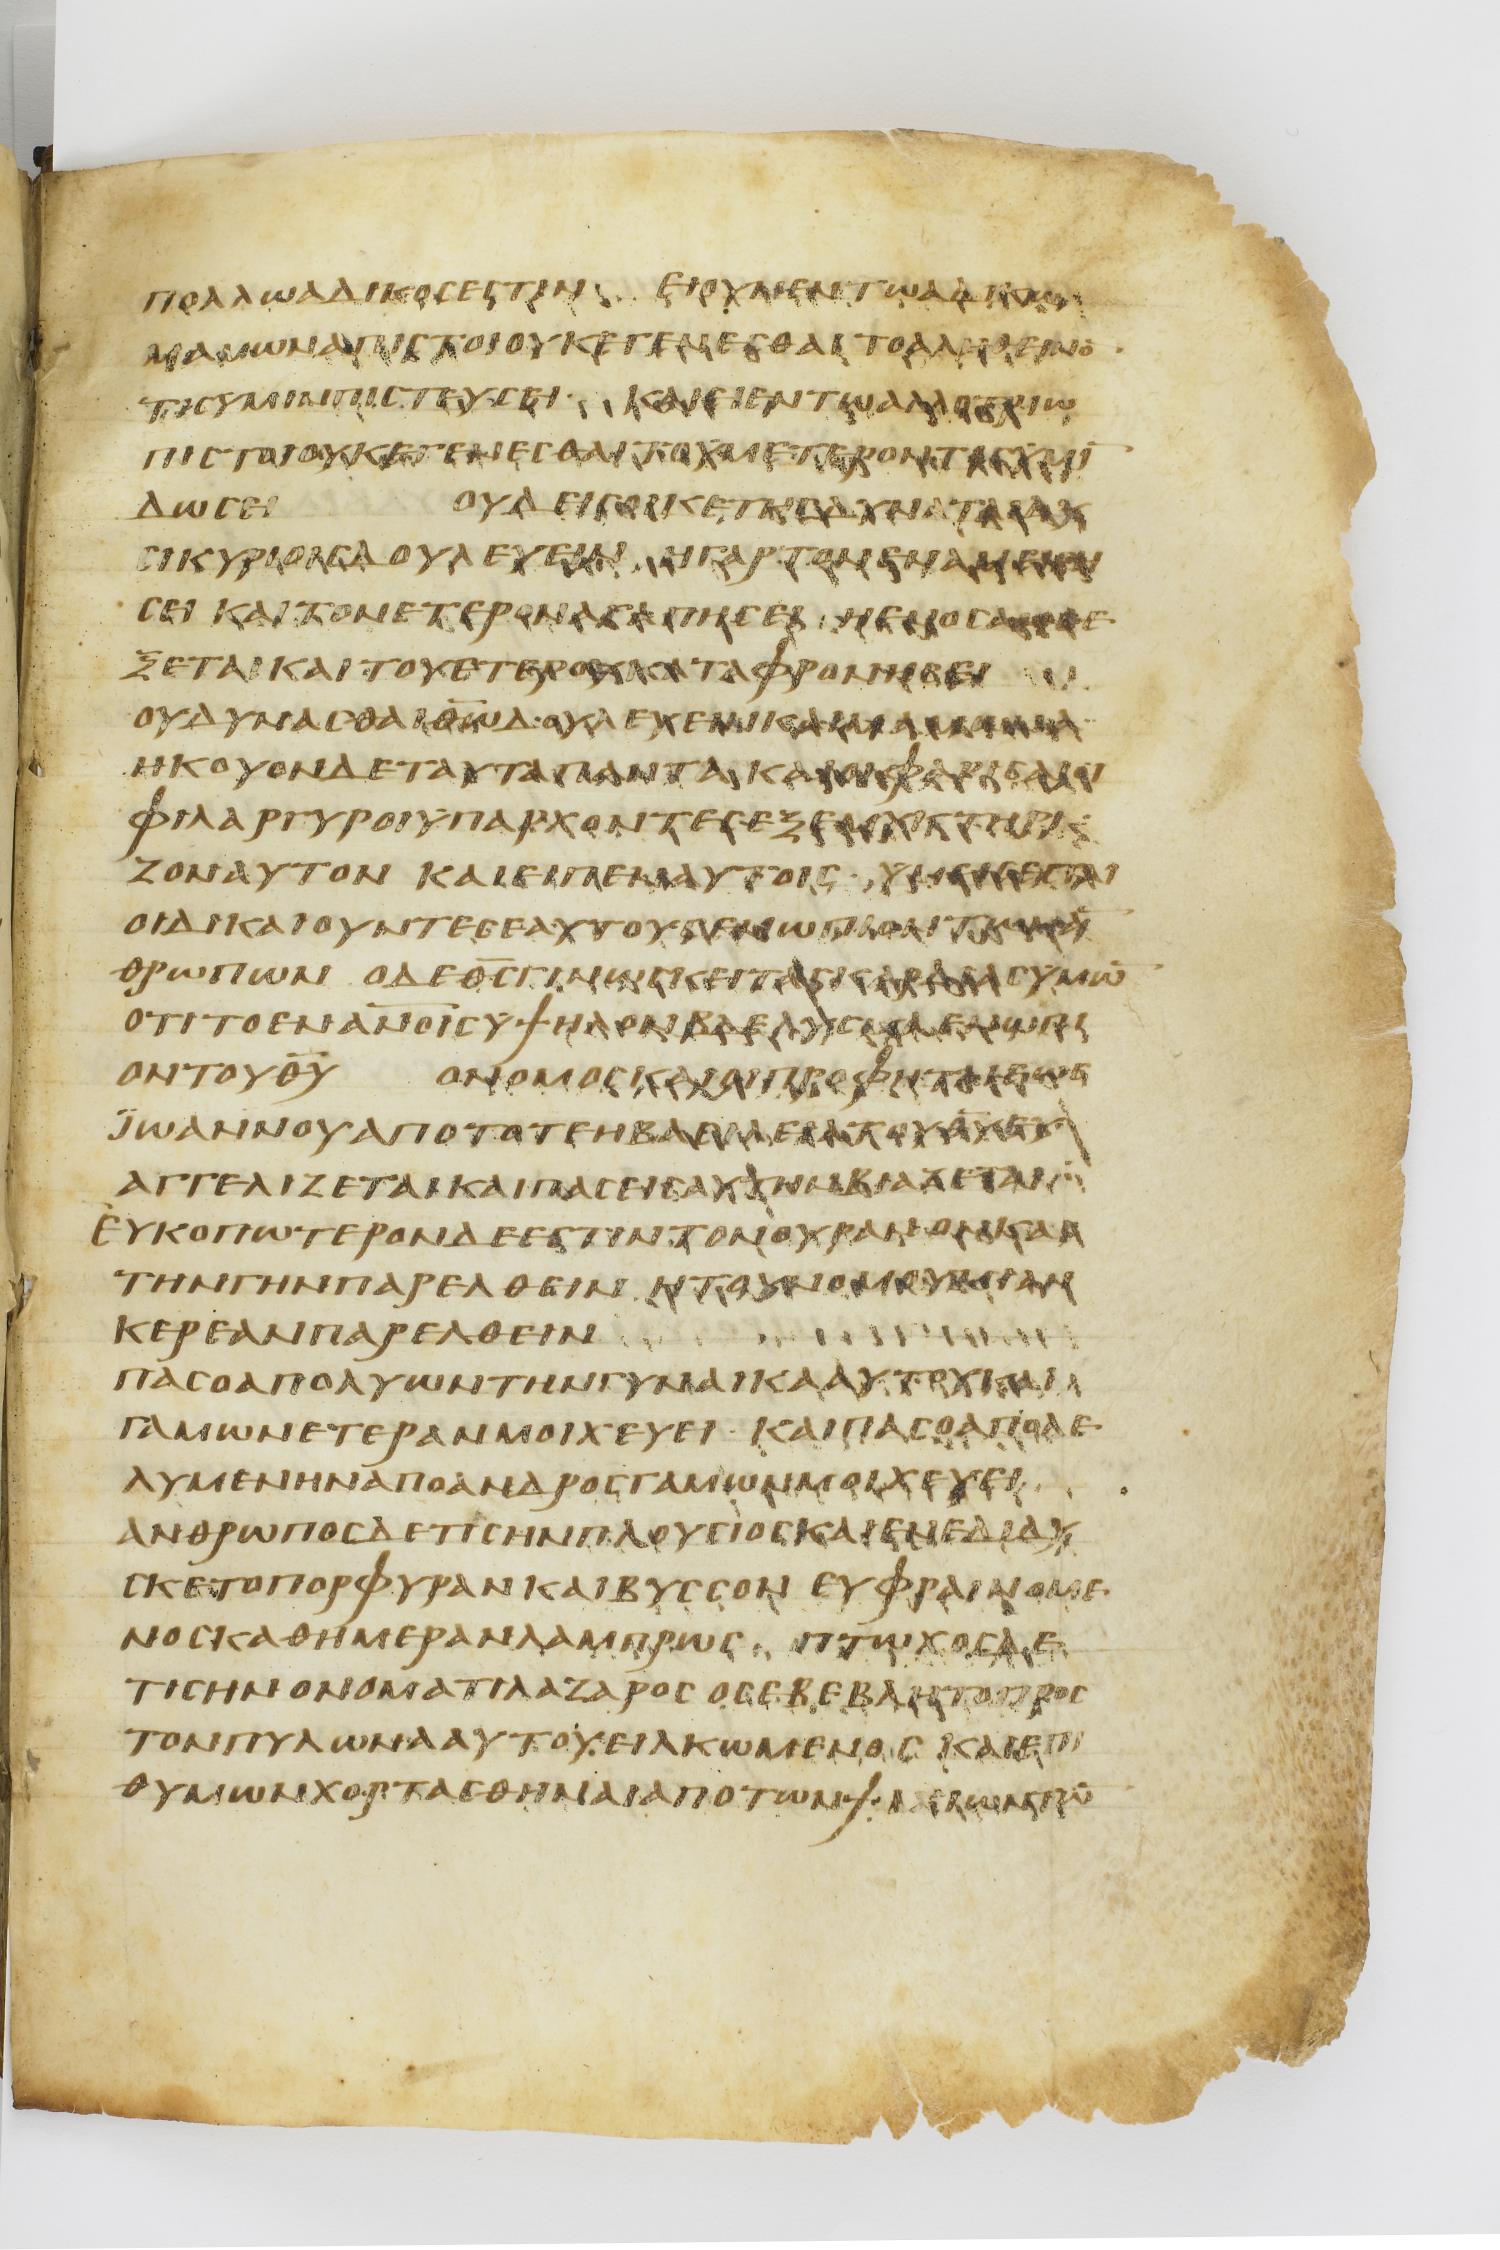 ΠΟΛΛΩΑΔΙΚΟCΕCΤΙΝ · ΕΙΟΥΝΕΝΤΩΑΔΙΚΩ
ΜΑΜΩΝΑΠΙCΤΟΙΟΥΚΕΓΕΝΕCΘΑΙΤΟΑΛΗΘΕΙΝΟ
ΤΙCΥΜΙΝΠΙCΤΕΥCΕΙ · ΚΑΙΕΙΕΝΤΩΑΛΛΟΤΡΙΩ
ΠΙCΤΟΙΟΥΚΕΓΕΝΕCΘΑΙΤΟΥΜΕΤΕΡΟΝΤΙCΥΜΙ̅
ΔΩCΕΙ ΟΥΔΕΙCΟΙΚΕΤΗCΔΥΝΑΤΑΙΔΥ
CΙΚΥΡΙΟΙCΔΟΥΛΕΥΕΙΝ · ΗΓΑΡΤΟΝΕΝΑΜΕΙCΗ
CΕΙ ΚΑΙΤΟΝΕΤΕΡΟΝΑΓΑΠΗCΕΙ · ΗΕΝΟCΑΝΘΕ
ΞΕΤΑΙΚΑΙΤΟΥΕΤΕΡΟΥΚΑΤΑΦΡΟΝΗCΕΙ
ΟΥΔΥΝΑCΘΑΙΘ̅Ω̅ΔΟΥΛΕΥΕΙΝΚΑΙΜΑΜΩΝΑ
ΗΚΟΥΟΝΔΕΤΑΥΤΑΠΑΝΤΑΚΑΙΟΙΦΑΡΙCΑΙΟΙ
ΦΙΛΑΡΓΥΡΟΙΥΠΑΡΧΟΝΤΕCΕΞΕΜΥΚΤΗΡΙ
ΖΟΝΑΥΤΟΝ ΚΑΙΕΙΠΕΝΑΥΤΟΙC · ΥΜΕΙCΕCΤΑΙ
ΟΙΔΙΚΑΙΟΥΝΤΕCΕΑΥΤΟΥCΕΝΩΠΙΟΝΤΩΝΑ̅
ΘΡΩΠΩΝ ΟΔΕΘ̅C̅ΓΙΝΩCΚΕΙΤΑCΚΑΡΔΙΑCΥΜΩ̅
ΟΤΙΤΟΕΝΑ̅Ν̅Ο̅Ι̅C̅ΥΨΗΛΟΝΒΔΕΛΥΓΜΑΕΝΩΠΙ
ΟΝΤΟΥΘ̅Υ̅ ΟΝΟΜΟCΚΑΙΟΙΠΡΟΦΗΤΑΙΕΩC
ΪΩΑΝΝΟΥΑΠΟΤΟΤΕΗΒΑCΙΛΕΙΑΤΟΥΘ̅Υ̅ΕΥ
ΑΓΓΕΛΙΖΕΤΑΙΚΑΙΠΑCΕΙCΑΥΤΗΝΒΙΑΖΕΤΑΙ
ΕΥΚΟΠΩΤΕΡΟΝΔΕΕCΤΙΝΤΟΝΟΥΡΑΝΟΝΚΑΙ
ΤΗΝΓΗΝΠΑΡΕΛΘΕΙΝ ΗΤΟΥΝΟΜΟΥΜΙΑΝ
ΚΕΡΕΑΝΠΑΡΕΛΘΕΙΝ
ΠΑCΟΑΠΟΛΥΩΝΤΗΝΓΥΝΑΙΚΑΑΥΤΟΥΚΑΙ
ΓΑΜΩΝΕΤΕΡΑΝΜΟΙΧΕΥΕΙ · ΚΑΙΠΑCΟΑΠΟΛΕ
ΛΥΜΕΝΗΝΑΠΟΑΝΔΡΟCΓΑΜΩΝΜΟΙΧΕΥΕΙ
ΑΝΘΡΩΠΟCΔΕΤΙCΗΝΠΛΟΥCΙΟCΚΑΙΕΝΕΔΙΔΥ
CΚΕΤΟΠΟΡΦΥΡΑΝΚΑΙΒΥCCΟΝ ΕΥΦΡΑΙΝΟΜΕ
ΝΟCΚΑΘΗΜΕΡΑΝΛΑΜΠΡΩC · ΠΤΩΧΟCΔΕ
ΤΙCΗΝΟΝΟΜΑΤΙΛΑΖΑΡΟC ΟCΕΒΕΒΛΗΤΟΠΡΟC
ΤΟΝΠΥΛΩΝΑΑΥΤΟΥΕΙΛΚΩΜΕΝΟC ΚΑΙΕΠΙ
ΘΥΜΩΝΧΟΡΤΑCΘΗΝΑΙΑΠΟΤΩΝΨΙΧΙΩΝΤΩ̅